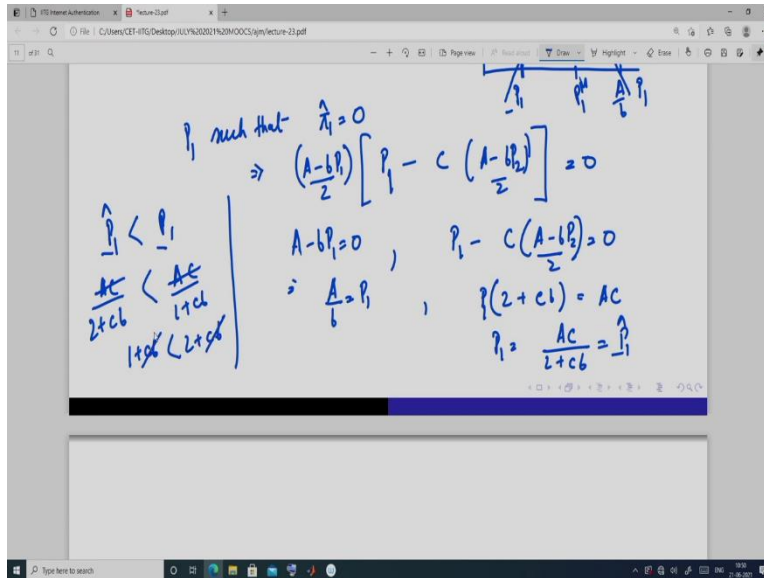 IITG Internet Authentication
*lecture-23.pdf
File | C:/Users/CET-IITG/Desktop/JULY%202021%20MOOCS/ajm/lecture-23.pdf
11 of 31
Page view
Read aloud
Draw
Highlight
Erase
P̲₁ P₁ᴹ A/b P₁
P₁ such that π̂₁ = 0
⇒ ((A-bP₁)/2) [P₁ - c ((A-bP₂)/2)] = 0
A-bP₁=0 , P₁ - c((A-bP₂)/2) = 0
= A/b = P₁ , P(2+cb) = AC
P₁ = AC/(2+cb) = P̲̂₁
P̲̂₁ < P̲₁
AC/(2+cb) < AC/(1+cb)
1+cb < 2+cb
Type here to search
ENG
10:50
21-06-2021